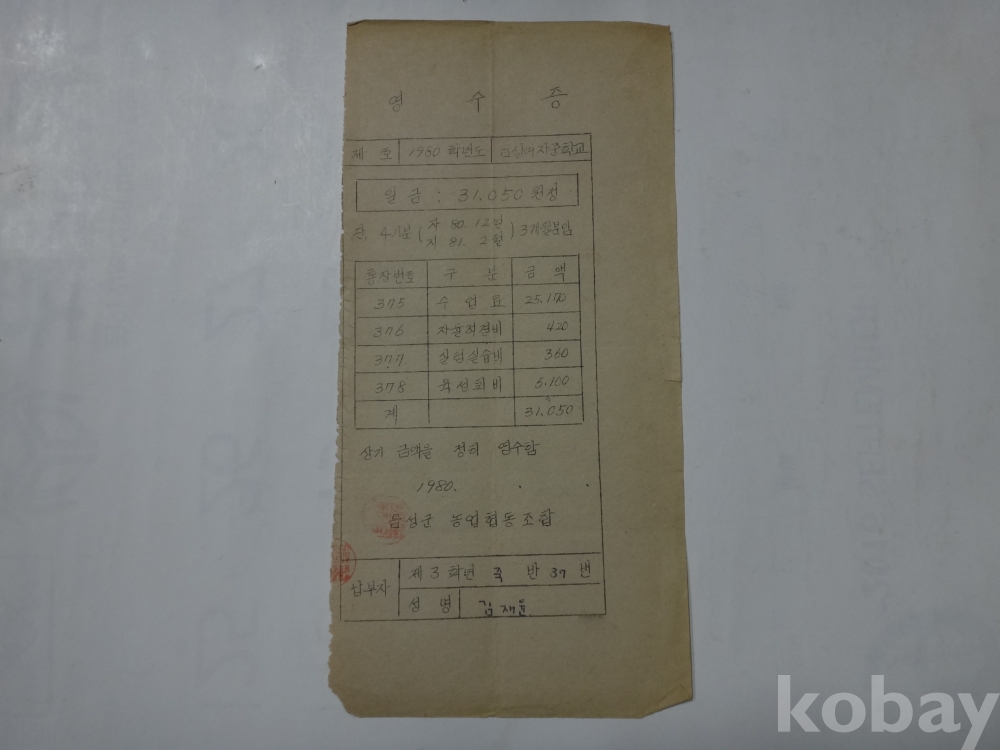 영 수 증
제 호 1980 학년도 음성여자중학교
일 금 : 31.050 원정
단. 4기분 (자 80. 12월 지 81. 2월) 3개월분임
통장번호 구 분 금 액
375 수 업 료 25.170
376 자율적경비 420
377 실험실습비 360
378 육 성 회 비 5.100
계 31.050
상기 금액을 정히 영수함
1980. . .
음성군 농업협동조합
납부자 제 3 학년 죽 반 37 번
성 명 김재윤
kobay